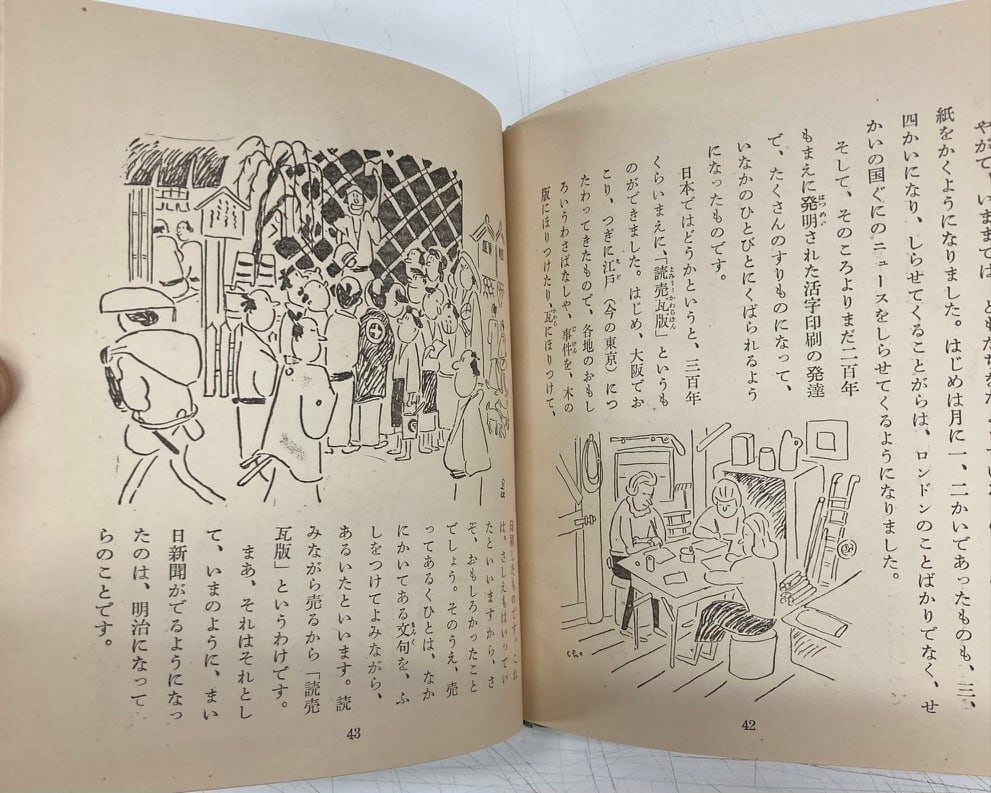 やがて、いままでは、ともだちを
紙をかくようになりました。はじめは月に一、二かいであったものも、三、
四かいになり、しらせてくることがらは、ロンドンのことばかりでなく、せ
かいの国ぐにのニュースをしらせてくるようになりました。
そして、そのころよりまだ二百年
もまえに発明された活字印刷の発達
で、たくさんのすりものになって、
いなかのひとびとにくばられるよう
になったものです。
日本ではどうかというと、三百年
くらいまえに、「読売瓦版」というも
のができました。はじめ、大阪でお
こり、つぎに江戸（今の東京）につ
たわってきたもので、各地のおもし
ろいうわさばなしや、事件を、木の
版にほりつけたり、瓦にほりつけて、
42
印刷したものです。これ
は、さしえもはいってい
たといいますから、さ
ぞ、おもしろかったこと
でしょう。そのうえ、売
ってあるくひとは、なか
にかいてある文句を、ふ
しをつけてよみながら、
あるいたといいます。読
みながら売るから「読売
瓦版」というわけです。
まあ、それはそれとし
て、いまのように、まい
日新聞がでるようになっ
たのは、明治になって
らのことです。
43